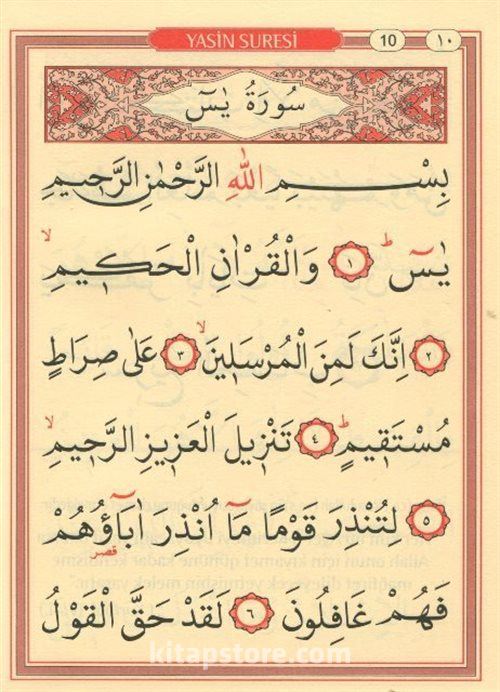 YASİN SURESİ 10 ١٠
سُورَةُ يٰسٓ
بِسْمِ اللّٰهِ الرَّحْمٰنِ الرَّحٖيمِ
يٰسٓ ۚ ﴿١﴾ وَالْقُرْاٰنِ الْحَكٖيمِۙ
﴿٢﴾ اِنَّكَ لَمِنَ الْمُرْسَلٖينَۙ ﴿٣﴾ عَلٰى صِرَاطٍ
مُسْتَقٖيمٍؕ ﴿٤﴾ تَنْزٖيلَ الْعَزٖيزِ الرَّحٖيمِۙ
﴿٥﴾ لِتُنْذِرَ قَوْمًا مَٓا اُنْذِرَ اٰبَٓاؤُ۬هُمْ
قصر
فَهُمْ غَافِلُونَ ﴿٦﴾ لَقَدْ حَقَّ الْقَوْلُ
kitapstore.com